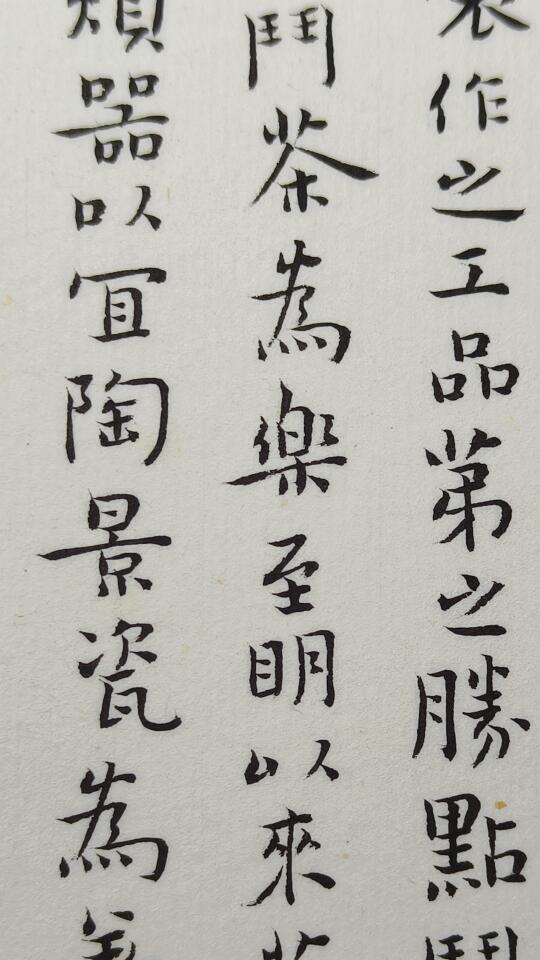 製作之工品第之勝點鬪
鬥茶為樂至明以來茶
煩器以宜陶景瓷為